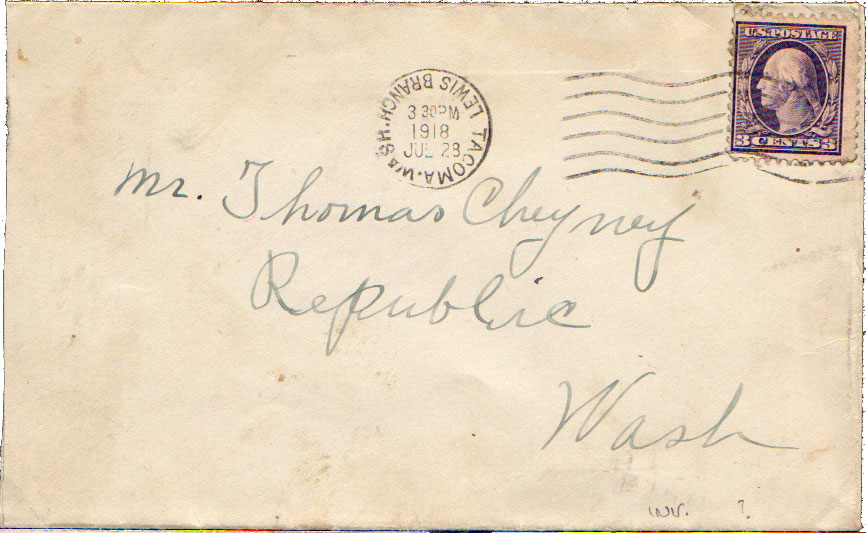 U.S. POSTAGE
3 CENTS 3
TACOMA, WASH.
LEWIS BRANCH
3 30 PM
1918
JUL 28
Mr. Thomas Cheyney
Republic
Wash
INV. ?